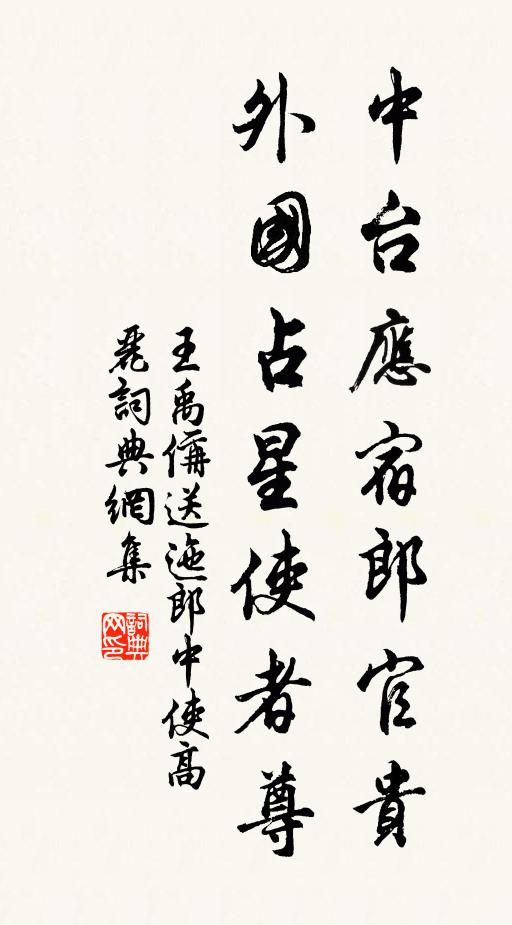 中台應宿郎官貴
外國占星使者尊
王禹偁送迤郎中使高
麗詞典網集
詞典
网印